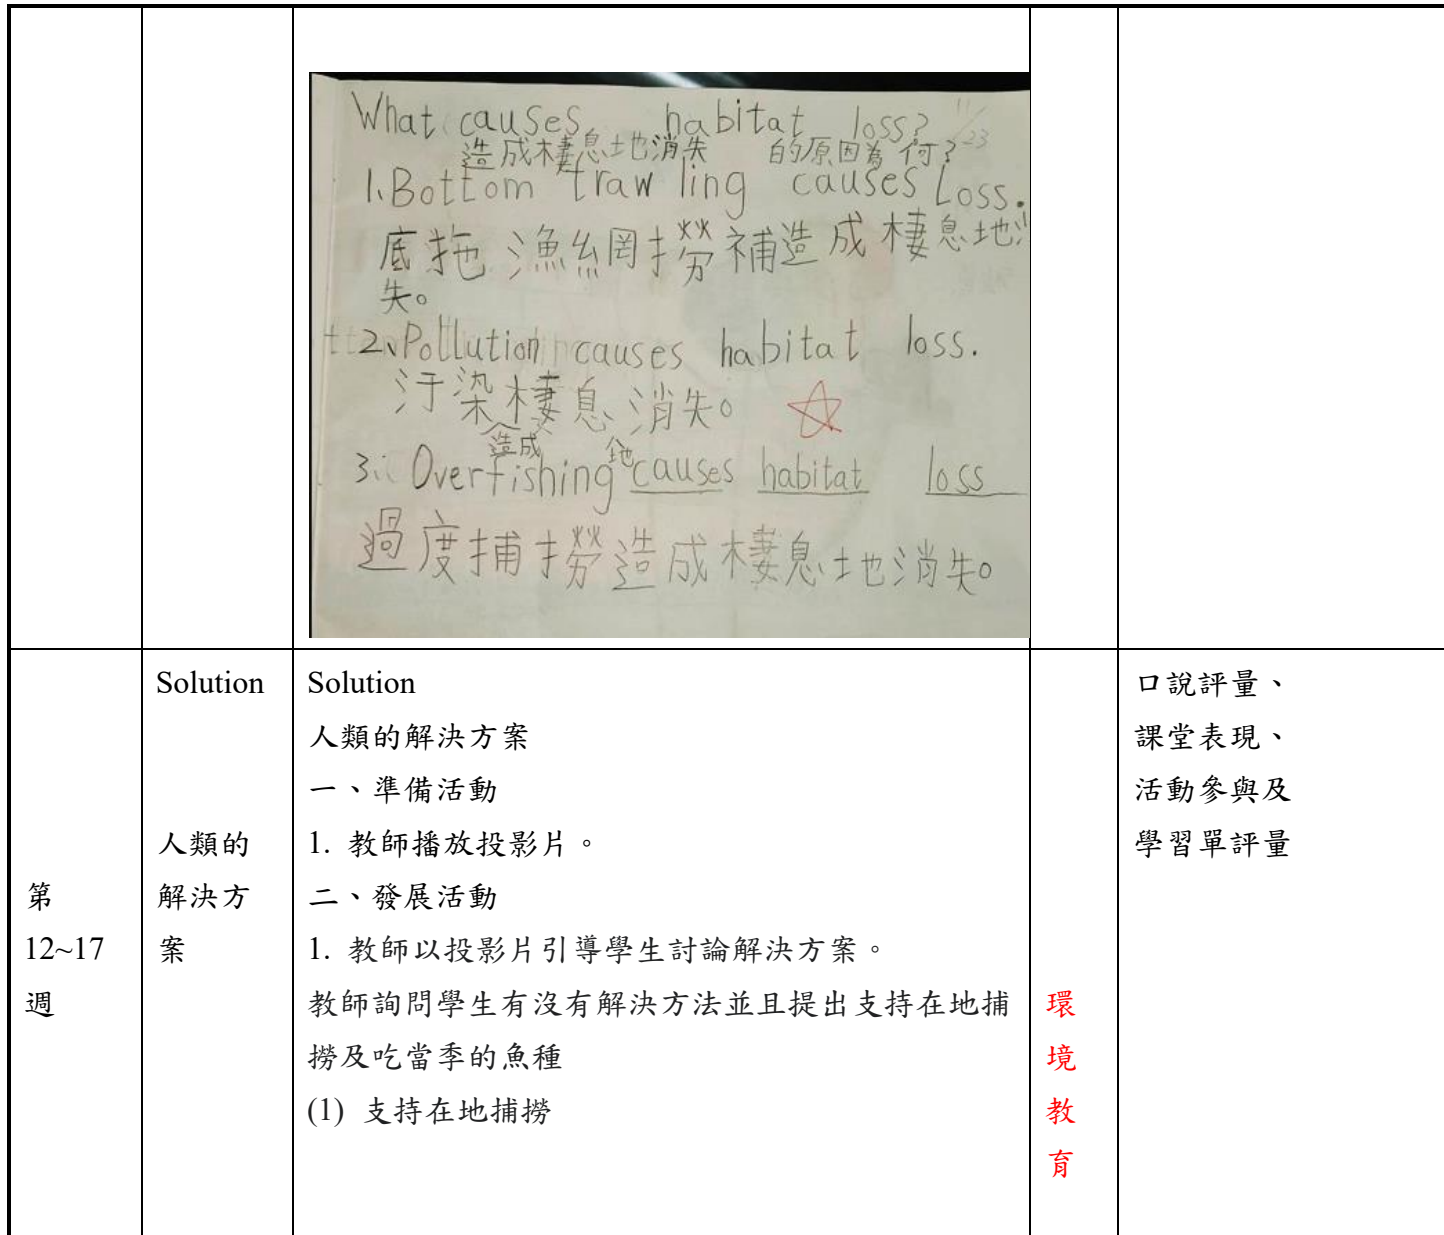 What causes habitat loss? 11/23
造成棲息地消失 的原因為何?
1.Bottom trawling causes Loss.
底拖漁網撈補造成棲息地消
失。
2.Pollution causes habitat loss.
汙染棲息消失。
造成 地
3. Overfishing causes habitat loss
過度捕撈造成棲息地消失。
第
12~17
週
Solution
人類的
解決方
案
Solution
人類的解決方案
一、準備活動
1. 教師播放投影片。
二、發展活動
1. 教師以投影片引導學生討論解決方案。
教師詢問學生有沒有解決方法並且提出支持在地捕
撈及吃當季的魚種
(1) 支持在地捕撈
環
境
教
育
口說評量、
課堂表現、
活動參與及
學習單評量